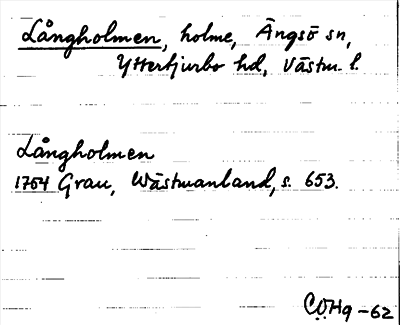 Långholmen, holme, Ängsö sn,
Yttertjurbo hd, Västm. l.
Långholmen
1754 Grau, Wästmanland, s. 653.
C.O.Hg -62